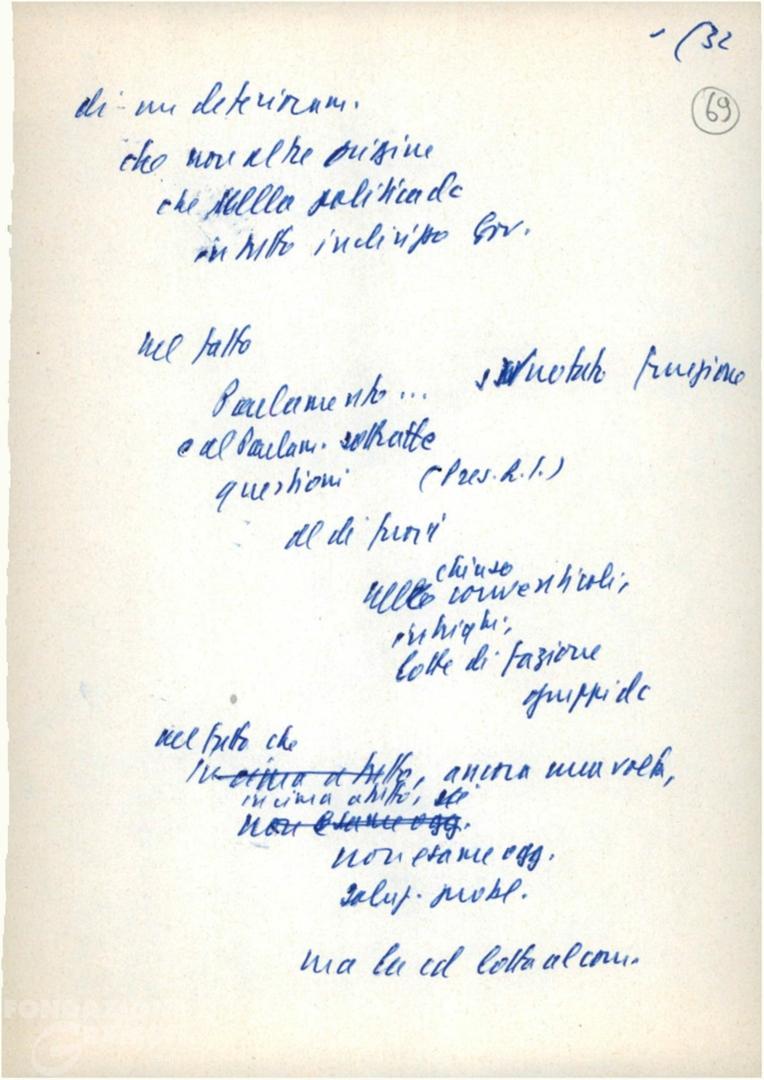 - (32
69
di un deterioram.
che non altra origine
che nella politica dc
in tutto indirizzo Gov.
nel fatto
Parlamento... svuotato funzione
e al Parlam. sottratte
questioni (Pres. R. I.)
al di fuori
chiuso
nelle conventicoli,
intrighi,
lotte di fazione
gruppi dc
nel fatto che
in cima a tutto, ancora una volta,
in cima a tutto,
non esame ogg.
non esame ogg.
soluz. probl.
ma la cd lotta al com.
FONDAZIONE